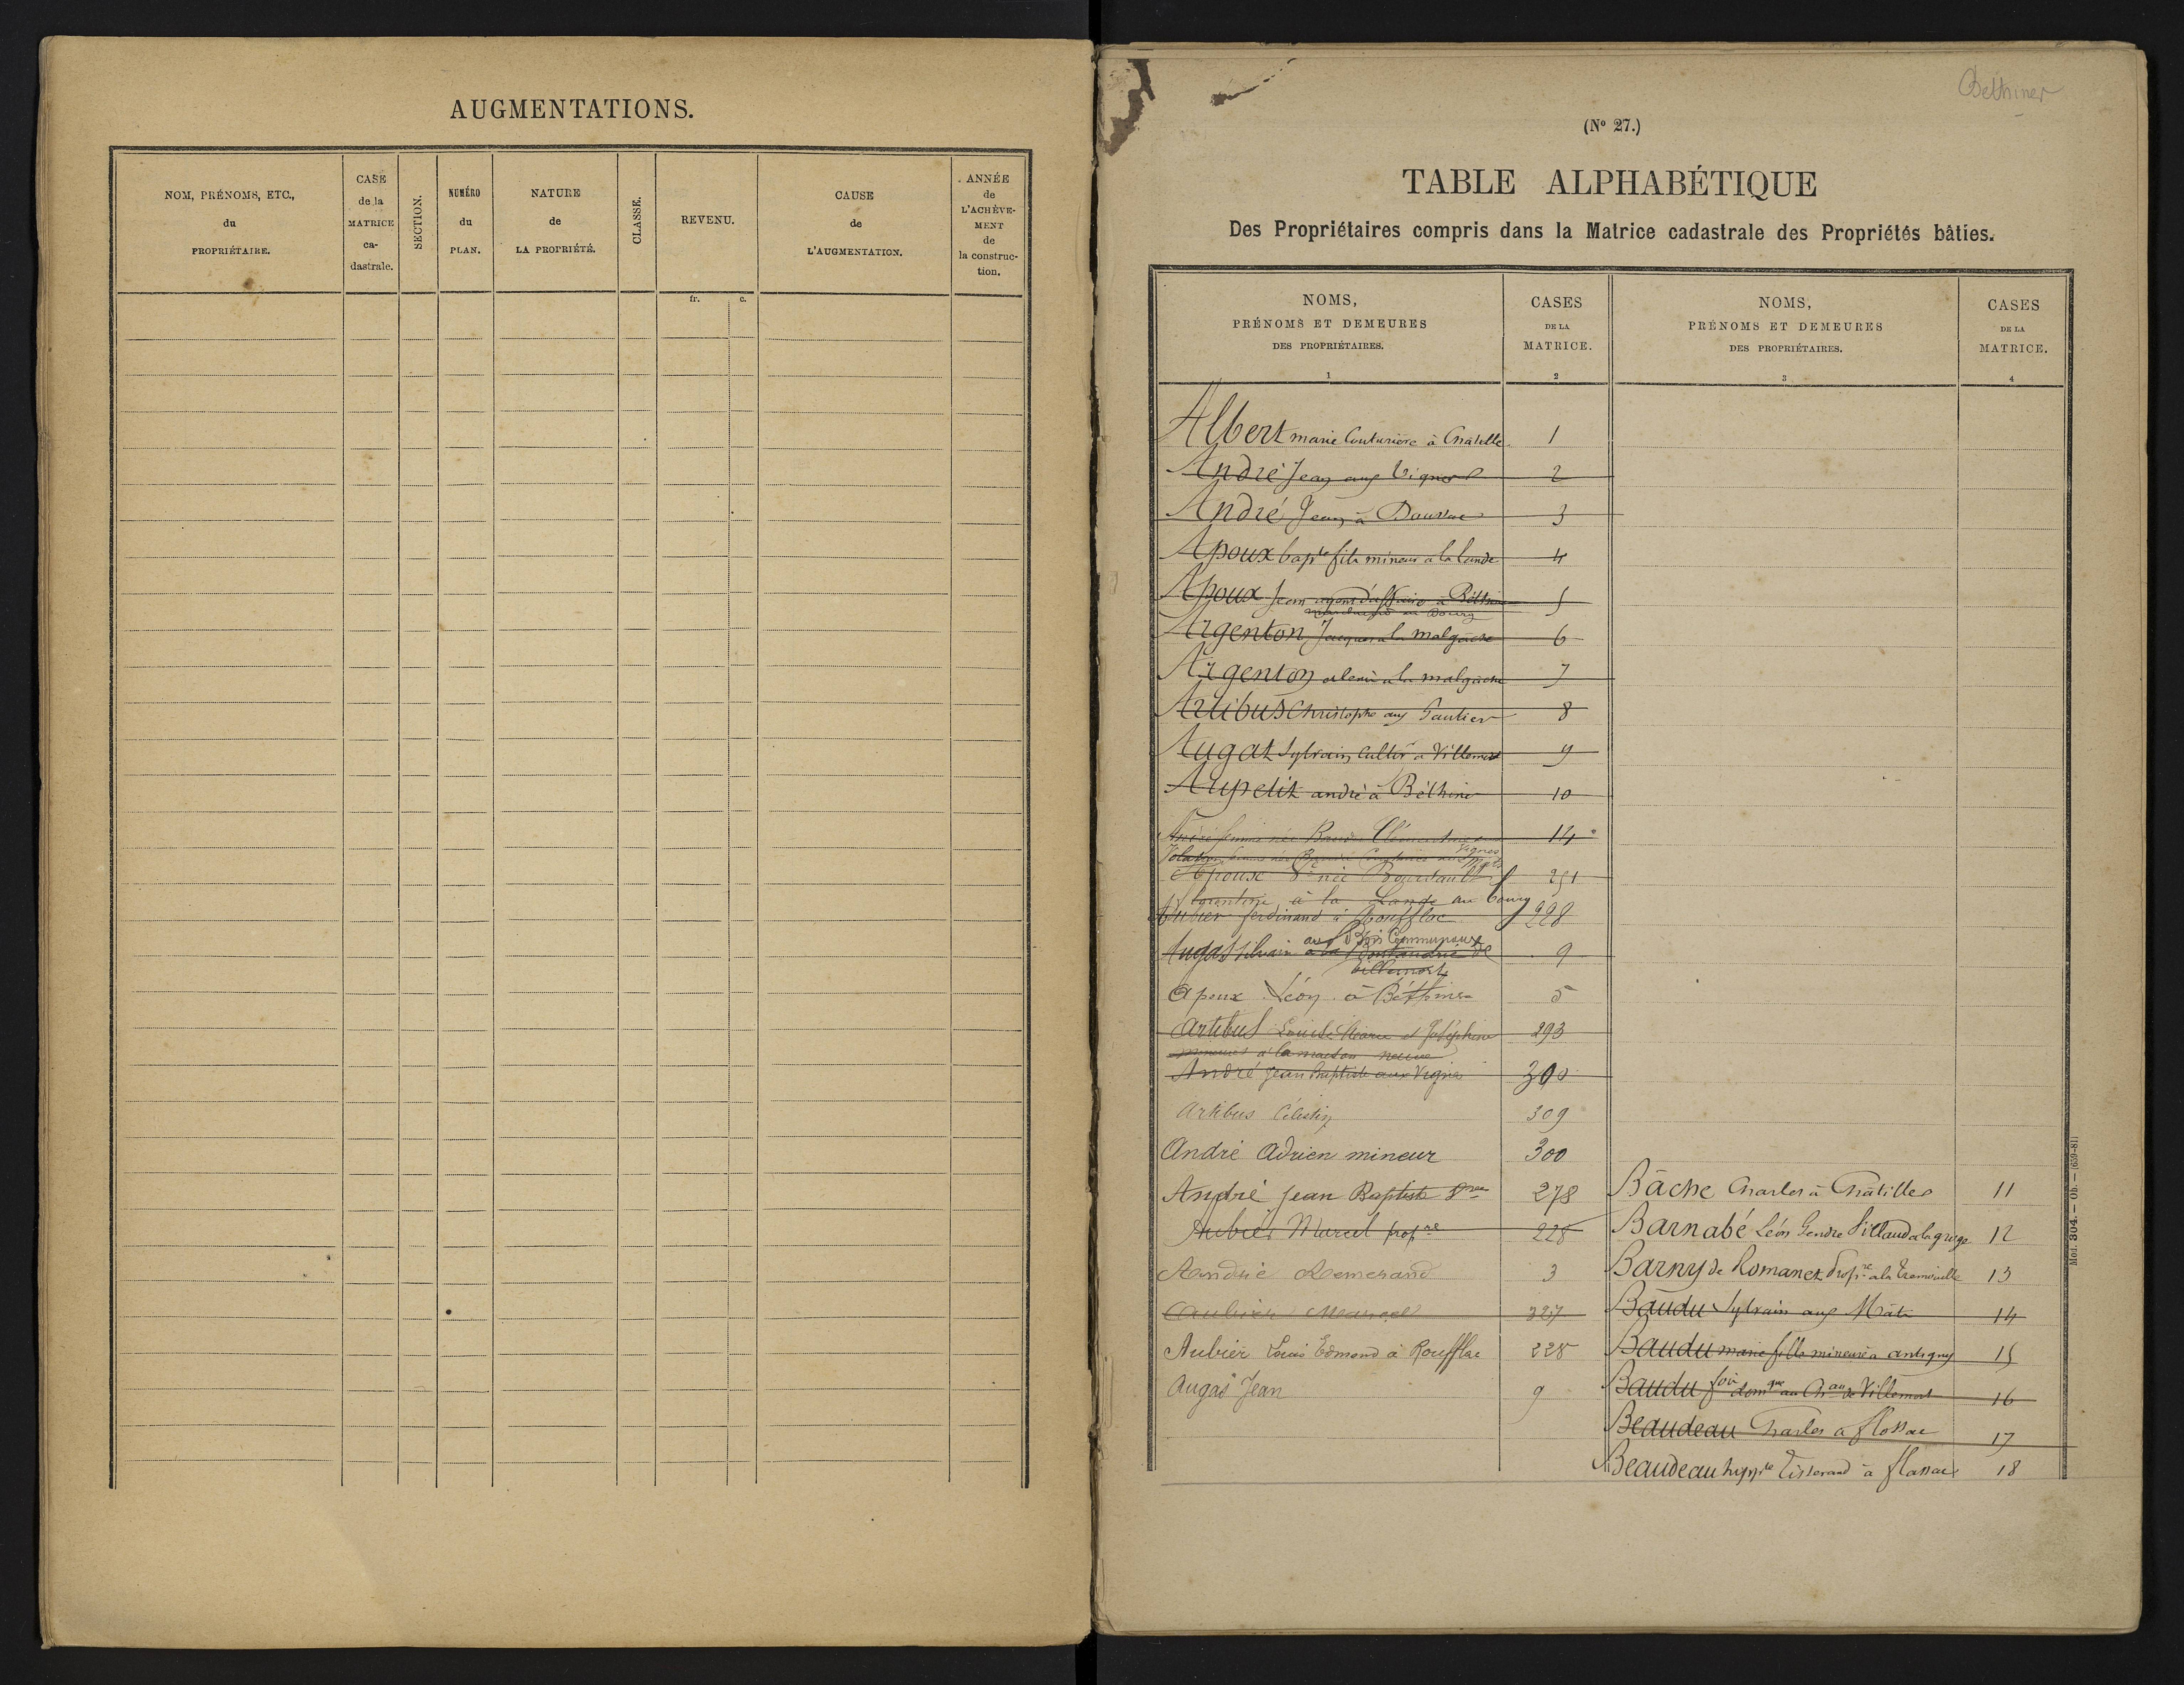 AUGMENTATIONS.
NOM, PRÉNOMS, ETC.,
du
PROPRIÉTAIRE.
CASE
de la
MATRICE
ca-
dastrale.
SECTION.
NUMÉRO
du
PLAN.
NATURE
de
LA PROPRIÉTÉ.
CLASSE.
REVENU.
CAUSE
de
L'AUGMENTATION.
ANNÉE
de
L'ACHÈVE-
MENT
de
la construc-
tion.
fr. c.
Bethines
(No 27.)
TABLE ALPHABÉTIQUE
Des Propriétaires compris dans la Matrice cadastrale des Propriétés bâties.
NOMS,
PRÉNOMS ET DEMEURES
DES PROPRIÉTAIRES.
1
CASES
DE LA
MATRICE.
2
NOMS,
PRÉNOMS ET DEMEURES
DES PROPRIÉTAIRES.
3
CASES
DE LA
MATRICE.
4
Albert marie Couturière à Chatille 1
André Jean aux Vignes 2
André Jean à 3
Apoux bapte fils mineur a la lande 4
Apoux Jean à Béthines 5
au Bourg
Argenton Jacques a la malgache 6
Argenton a la malgache 7
Artibus Christophe aux Gautier 8
Augat Sylvain Cultr à Villemort 9
Aupetit andré à Béthines 10
André femme née Baudu 14
Vignes
Apoux née Bourdault 251
à la Lande au bourg
Aubier ferdinand à Roufflac 228
aux Bois Communaux
Augat Silvain 9
Villemort
Apoux Léon à Béthines 5
Artibus Louise Marie et Joséphine 293
mineures à la maison neuve
André Jean Baptiste aux Vignes 300
Artibus Célestin 309
André Adrien mineur 300
André Jean Baptiste 278
Aubier Marcel propre 228
André 3
Aubier Marcel 327
Aubier Louis Edmond à Roufflac 228
Augas Jean 9
Bâche Charles à Châtilles 11
Barnabé Léon Gendre Pillaud a la grange 12
Barny de Romanet Propre a la Tremouille 13
Baudu Sylvain aux Mâts 14
Baudu marie fille mineure à antigny 15
Baudu domque au Chau de Villemort 16
Beaudeau Charles a flassac 17
Beaudeau hyppte Tisserand à flassac 18
Mod. 304. — Ob. — (659-81)